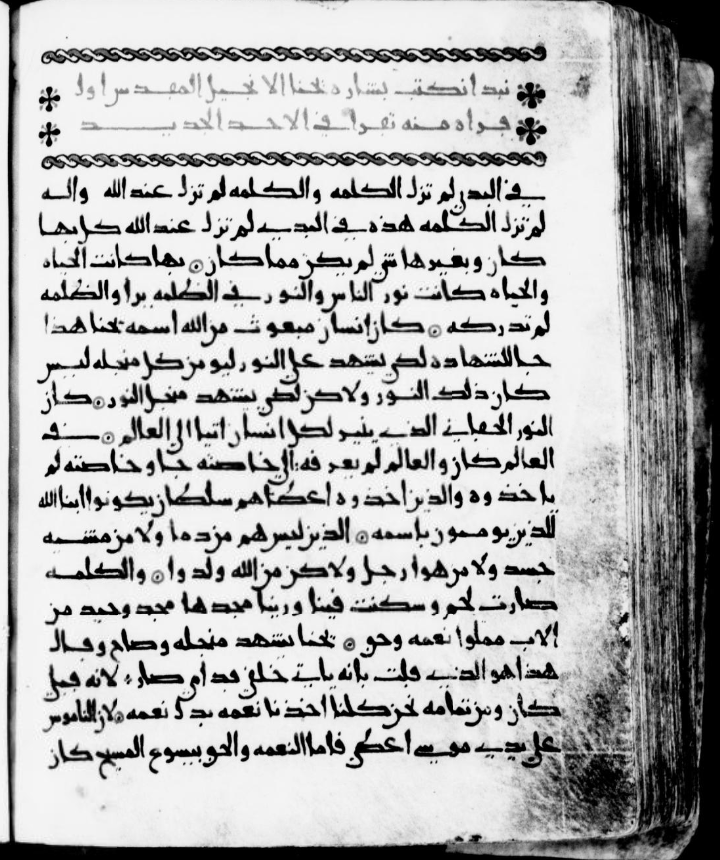 نبدا نكتب بشاره يحنا الانجيل المقدس اول
قراه منه تقرا في الاحد الجديد
في البدي لم تزل الكلمه والكلمه لم تزل عند الله واله
لم تزل الكلمه هذه في البدي لم تزل عند الله كل بها
كان وبغيرها شي لم يكن مما كان بها كانت الحياه
والحياه كانت نور الناس والنور في الظلمه يرا والظلمه
لم تدركه كان انسان مبعوث من الله اسمه يحنا هذا
جا للشهاده لكي يشهد على النور ليومن كل منجله ليس
كان ذلك النور ولاكن لكي يشهد منجل النور كان
النور الحقاني الذي ينير لكل انسان اتيا الى العالم في
العالم كان والعالم لم يعرفه الى خاصته جا وخاصته لم
ياخذوه والذين اخذوه اعطاهم سلطان يكونوا ابنا الله
للذين يومنون باسمه الذين ليس هم من دما ولا من مشيه
جسد ولا من هوا رجل ولاكن من الله ولدوا والكلمه
صارت لحم وسكنت فينا وراينا مجدها مجد وحيد من
الاب مملوا نعمه وحق يحنا يشهد منجله وصاح وقال
هذا هو الذي قلت بانه ياتي خلفي قدامي صار لانه قبلي
كان ومن تمامه نحن كلنا اخذنا نعمه بدل نعمه لان الناموس
على يدي موسى اعطي فاما النعمه والحق بيسوع المسيح كان